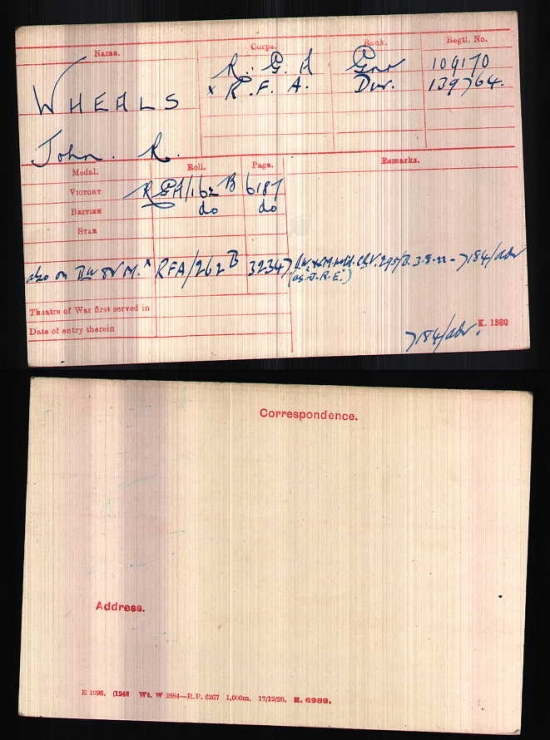 Name. Corps. Rank. Regtl. No.
WHEALS R.G.A Gnr 109170
x R.F.A. Dvr. 139764.
John. R.
Medal. Roll. Page. Remarks.
VICTORY RGA/162 B 6187
BRITISH do do
STAR
also on BW & V M. x RFA/262 B 32347 3.8.22 - 7184/adv
(as J.R.E.)
Theatre of War first served in
Date of entry therein
7184/adv. K. 1380
Correspondence.
Address.
E 1596. Wt. W 2884—R.P. 6267 1,000m. 17/12/20. K. 6989.